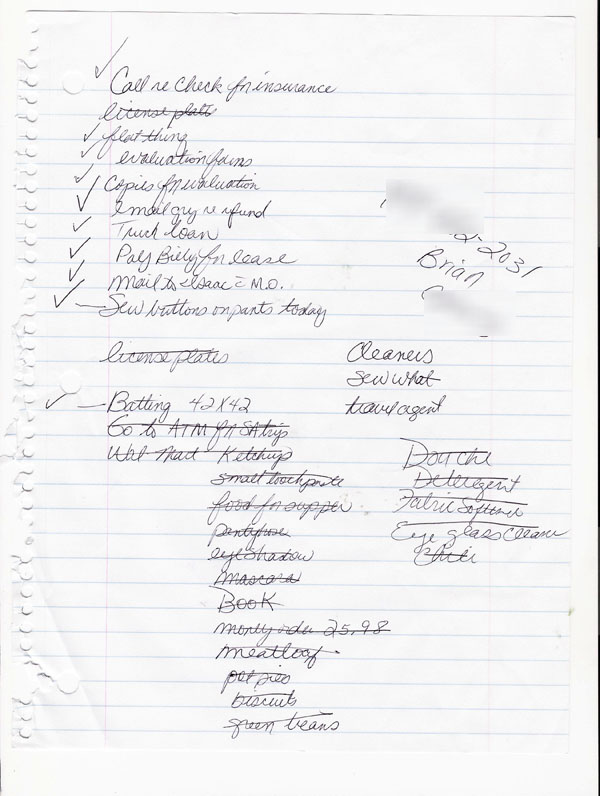 Call re check for insurance
license plate
float thing
evaluation forms
Copies for evaluation
email gry re refund
Truck loan
Pay Billy for lease
mail to Isaac = M.O.
Sew buttons on pants today
2-2031
Brian
license plates
Cleaners
Sew what
travel agent
Batting 42x42
Go to ATM for SA trip
Wal Mart Ketchup
small toothpaste
food for supper
pantyhose
eyeshadow
mascara
BOOK
money order 25.98
meatloaf
pot pies
biscuits
green beans
Douche
Detergent
Fabric Softner
Eye glass cleaner